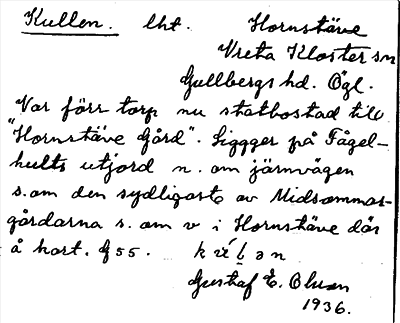 Kullen. lht. Hornstäve
Vreta Kloster sn
Gullbergs hd. Ögl.
Var förr torp nu statbostad till
"Hornstäve Gård". Liggger på Fågel-
hults utjord n. om järnvägen
s. om den sydligaste av Midsommar-
gårdarna s. om v i Hornstäve där
å kart. G 55.
Gustaf E. Olsson
1936.